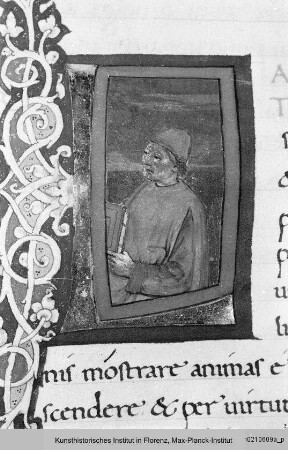 A
T
nis mostrare animas e
scendere & per virtut
Kunsthistorisches Institut in Florenz, Max-Planck-Institut
f0210609a_p